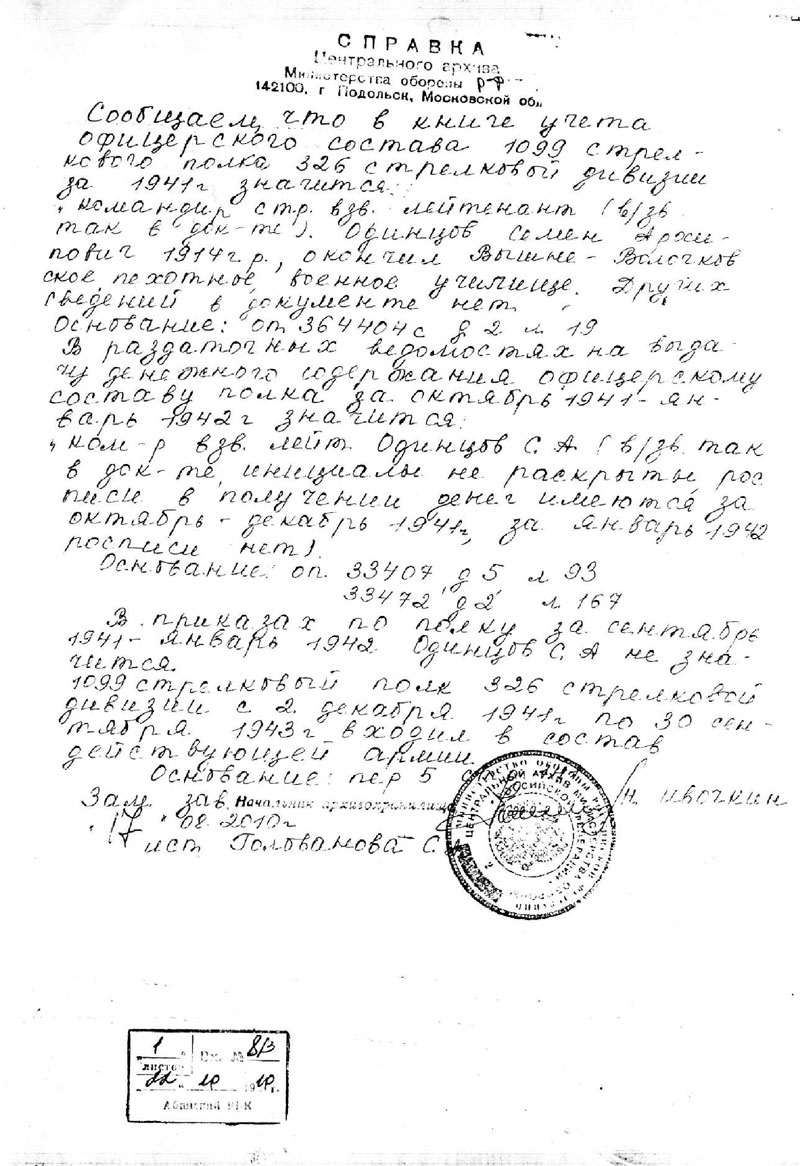 СПРАВКА
Центрального архива
Министерства обороны РФ
142100, г Подольск, Московской обл
Сообщаем, что в книге учета
офицерского состава 1099 стрел-
кового полка 326 стрелковый дивизии
за 1941г значится:
"командир стр. взв. лейтенант (в/зв
так в док-те). Одинцов Семен Архи-
пович 1914г.р., окончил Вышне-Волочков
ское пехотное военное училище. Других
сведений в документе нет
Основание: оп 364404с д 2 л 19
В раздаточных ведомостях на выда-
чу денежного содержания офицерскому
составу полка за октябрь 1941-ян-
варь 1942г значится:
"ком-р взв. лейт. Одинцов С. А (в/зв. так
в док-те, инициалы не раскрыты рос
писи в получении денег имеются за
октябрь-декабрь 1941г, за январь 1942
росписи нет).
Основание: оп. 33407 д 5 л 93
33472 д 2 л 167
В приказах по полку за сентябрь
1941-январь 1942 Одинцов С. А не зна-
чится.
1099 стрелковый полк 326 стрелковой
дивизии с 2 декабря 1941г по 30 сен-
тября 1943г входил в состав
действующей армии
Основание: пер 5
Зам. зав. Начальник архивохранилища Ивочкин
"17" 08. 2010г
ист Голованова С.
ЦЕНТРАЛЬНЫЙ АРХИВ МИНИСТЕРСТВА ОБОРОНЫ РОССИЙСКОЙ ФЕДЕРАЦИИ
"1" Вх. № 8/3
листов
22 10 10г.
Абанский РВК